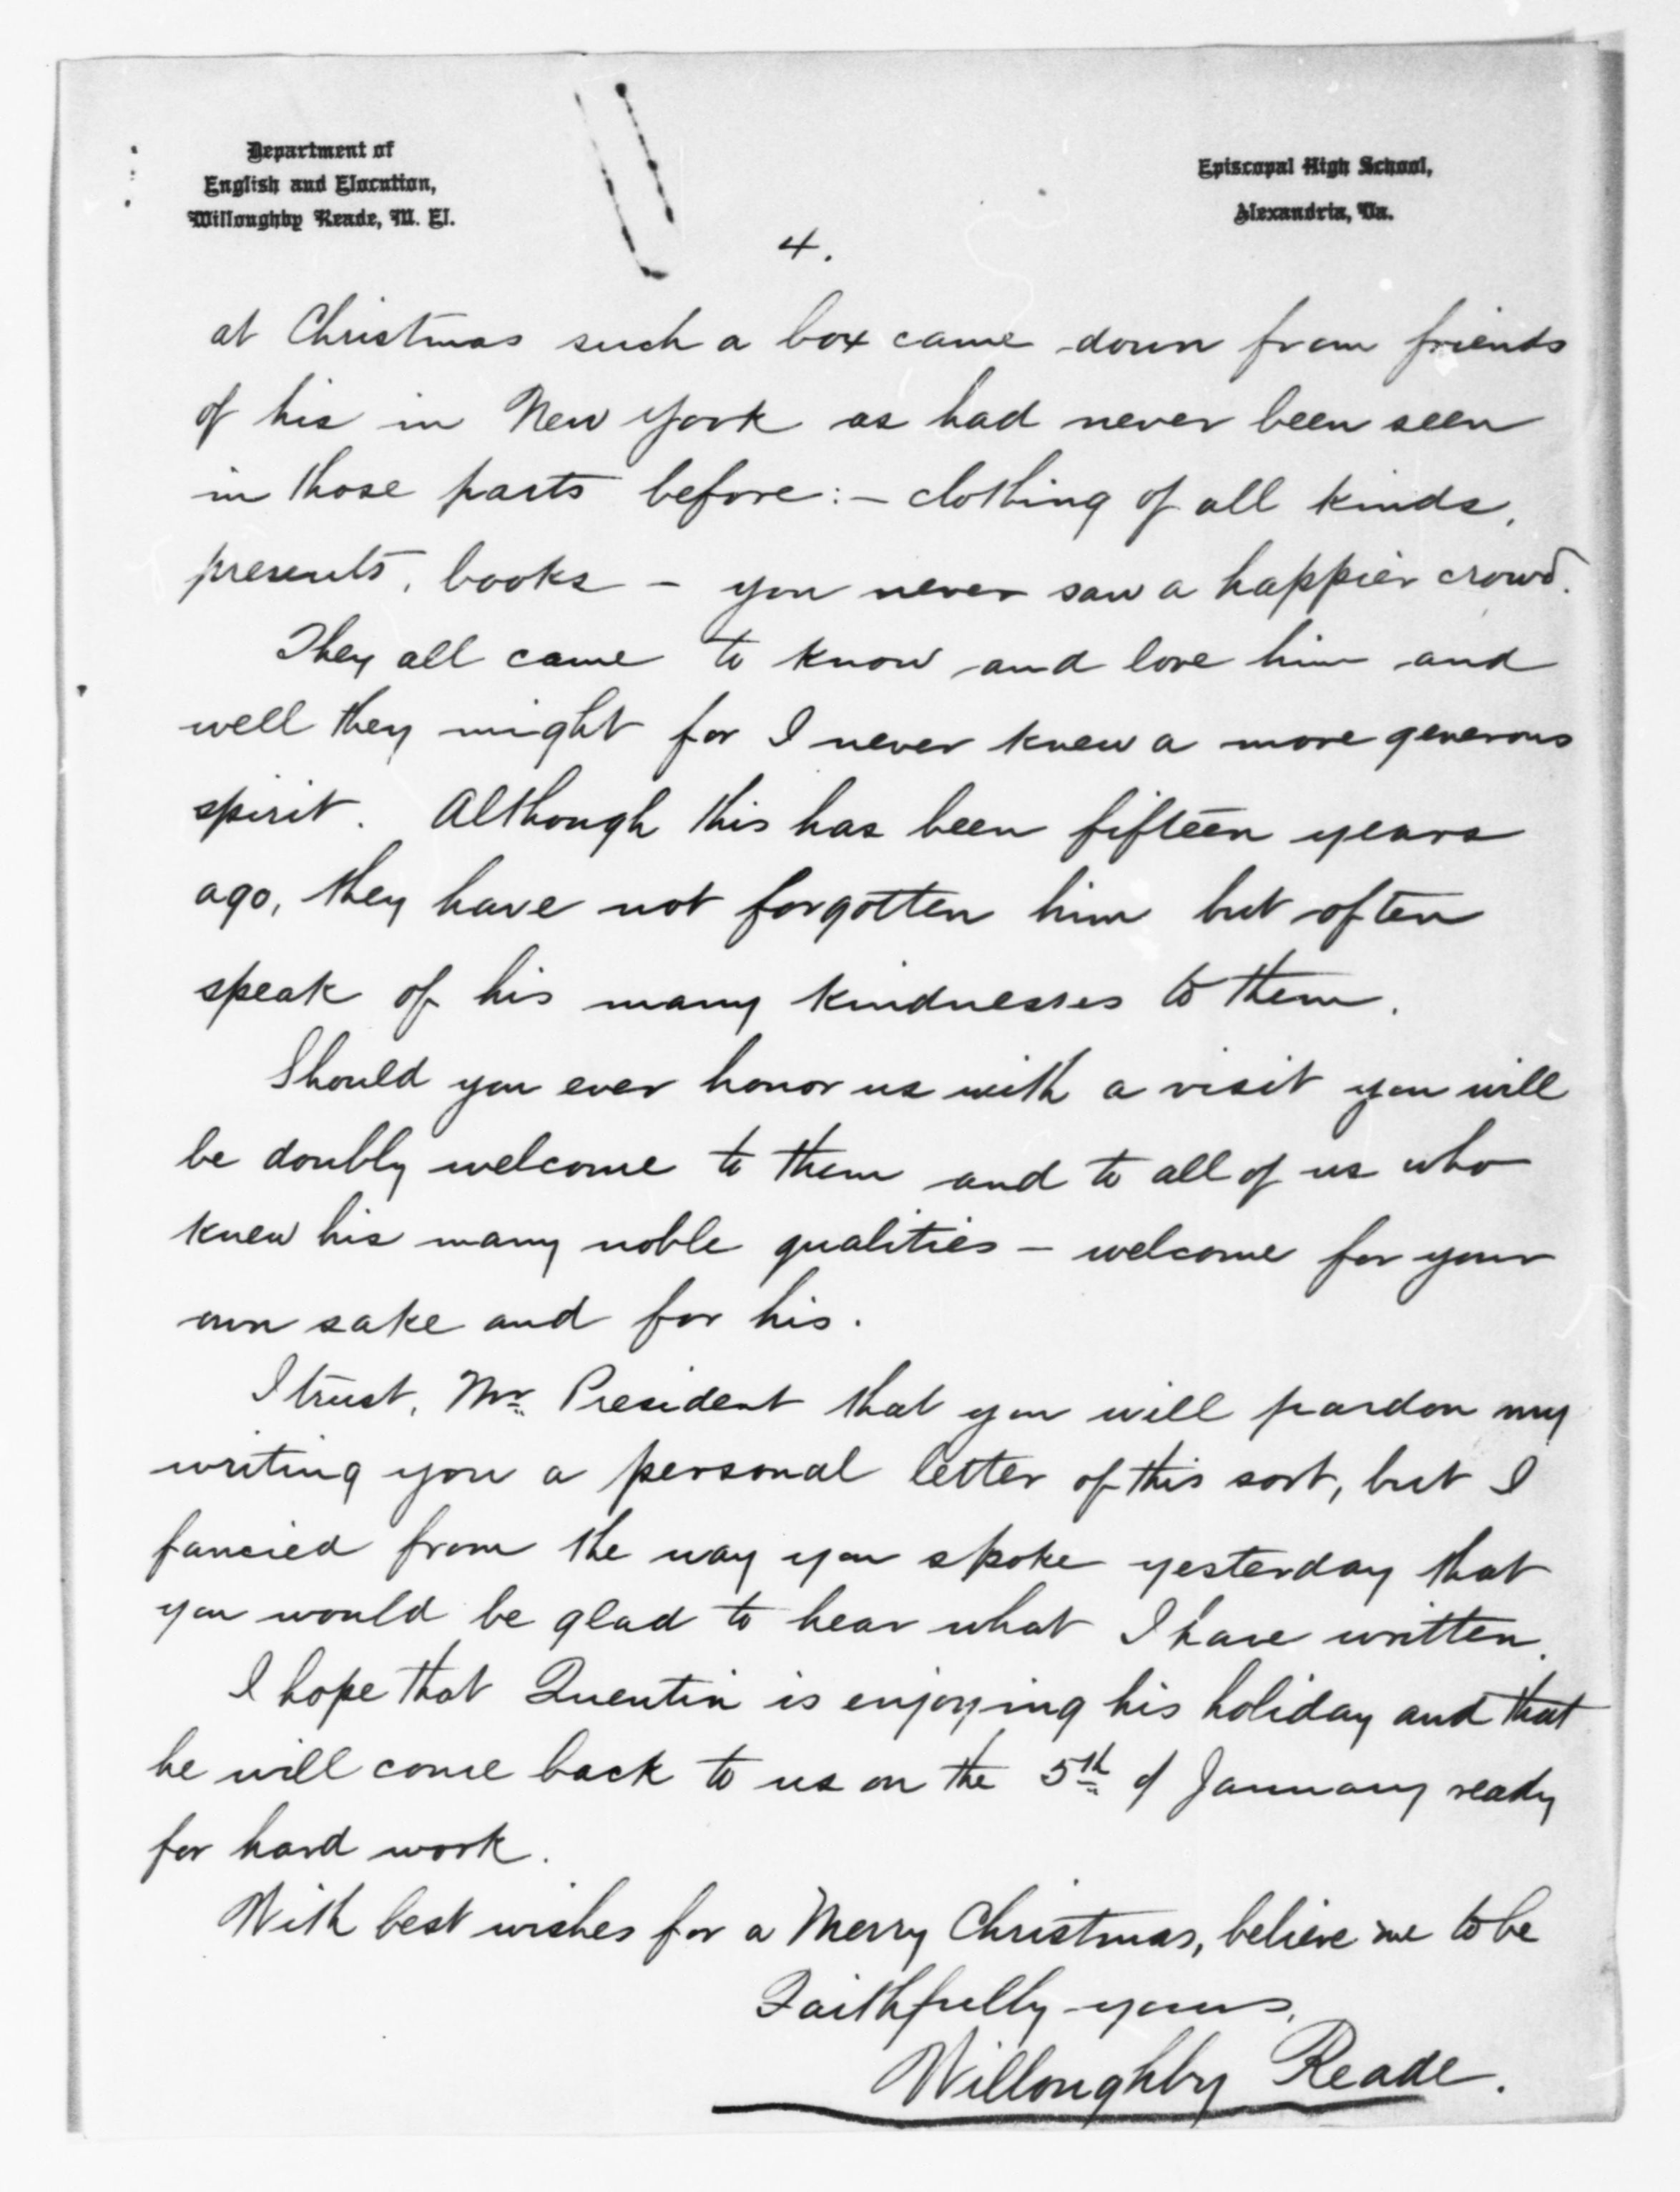 Department of
English and Elocution,
Willoughby Reade, M. El.
Episcopal High School,
Alexandria, Va.
4.
at Christmas such a box came down from friends
of his in New York as had never been seen
in those parts before: – clothing of all kinds,
presents, books – you never saw a happier crowd.
They all came to know and love him and
well they might for I never knew a more generous
spirit. Although this has been fifteen years
ago, they have not forgotten him but often
speak of his many kindnesses to them.
Should you ever honor us with a visit you will
be doubly welcome to them and to all of us who
knew his many noble qualities – welcome for your
own sake and for his.
I trust, Mr. President that you will pardon my
writing you a personal letter of this sort, but I
fancied from the way you spoke yesterday that
you would be glad to hear what I have written.
I hope that Quentin is enjoying his holiday and that
he will come back to us on the 5th of January ready
for hard work.
With best wishes for a Merry Christmas, believe me to be
Faithfully yours,
Willoughby Reade.